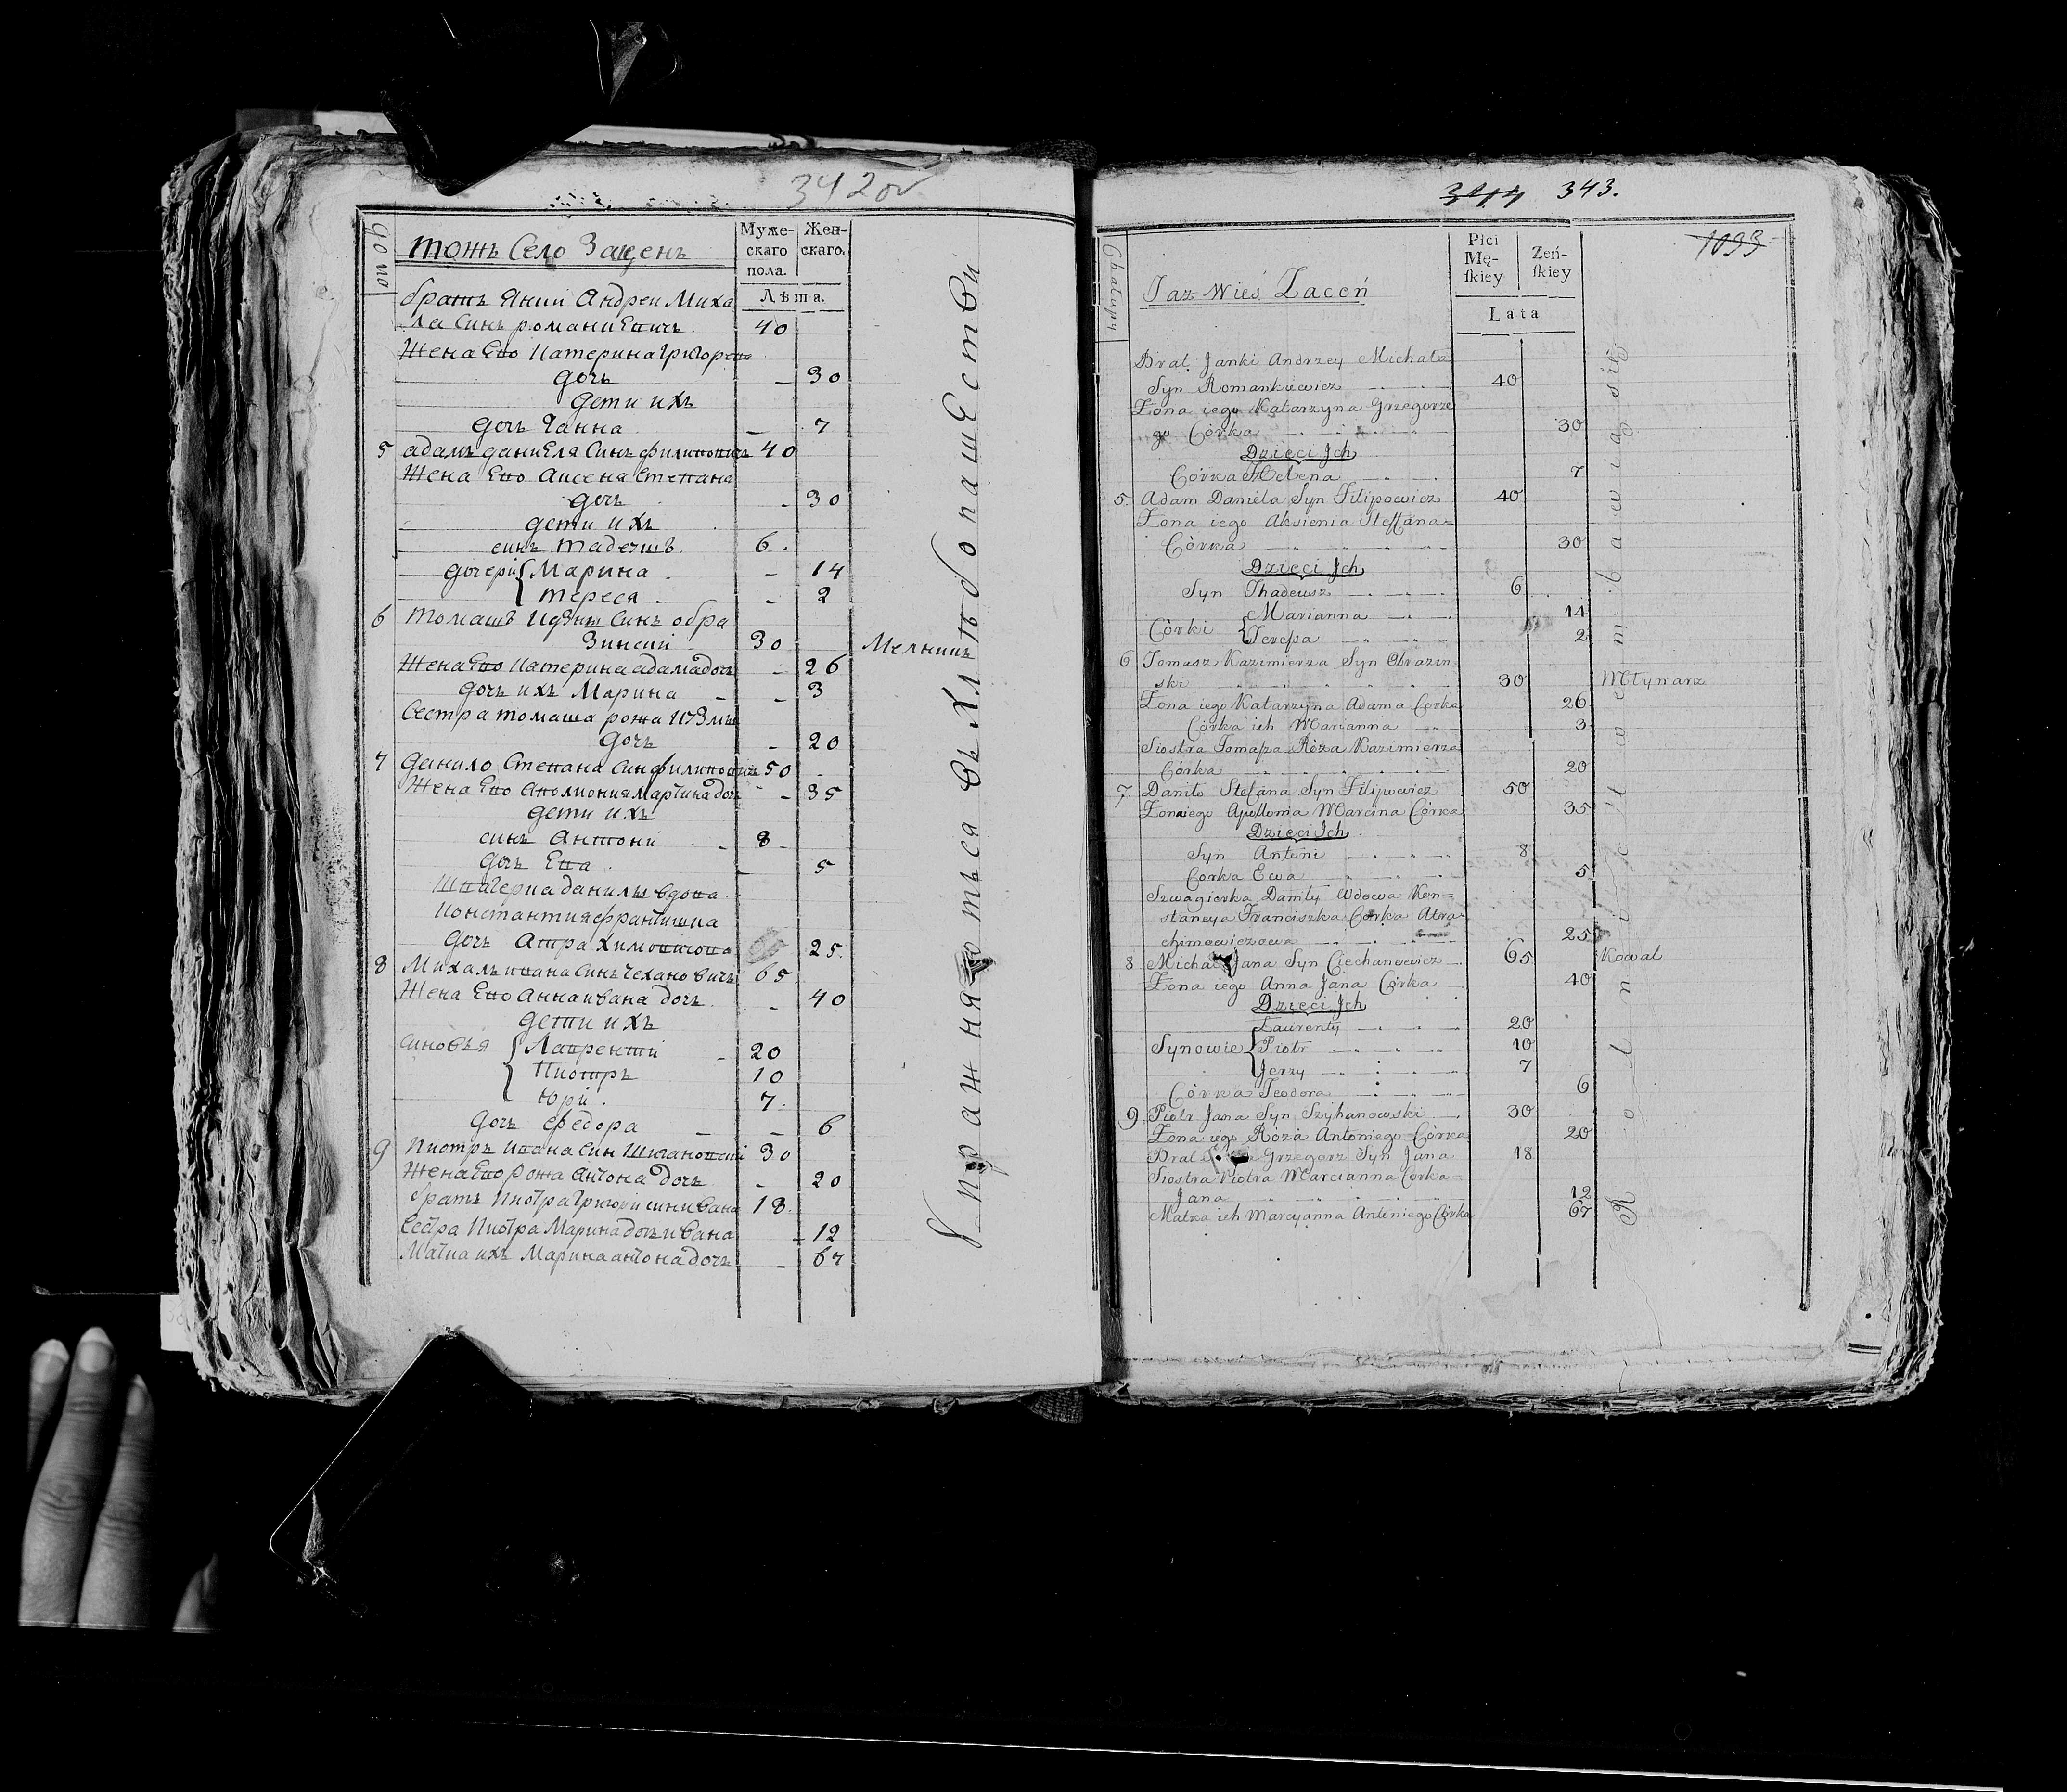 342 ov
домо
тожъ Село Зацень
Муже-
скаго
пола.
Жен-
скаго.
Лѣта.
братъ Янки Андреи Миха
ла Синъ романкевичъ 40
Жена Ево Катерина григоре
дочъ — 30
дети ихъ
дочъ Ганна — 7
5 адамъ даниеля Синъ филиповичъ 40
Жена Ево Аксеня Степана
дочъ - 30
дети ихъ
синъ тадеушъ 6.
дочери Марина - 14
тереся - 2
6 томашъ Синъ обра
зинский 30 Мелникъ
Жена Ево Катерина адама дочъ - 26
дочъ ихъ Марина - 3
Сестра томаша рожа
дочъ - 20
7 данило Степана Син филиповичъ 50
Жена Ево Аполиония Мартина дочъ - 35
дети ихъ
синъ Антони 8
дочъ Ева 5
Швагерка данилы вдова
Констанция францишка
дочъ Атрахимовичова 25.
8 Михалъ ивана Синъ Чехановичъ 65
Жена Ево Анна ивана дочъ - 40
дети ихъ
Синовья Лавренти 20
Пиотръ 10
Юри 7.
дочъ Федора — 6
9 Пиотръ ивана Син Шигановски 30
Жена Ево рожа Антона дочъ - 20
братъ Пиотра Григори син ивана 18
Сестра Пиотра Марина дочъ ивана - 12
Матка ихъ Марина антона дочъ - 67
Упражняются въ хлѣбопашестви
343.
1093
Chałupy
Taż Wieś Zaceń
Płci
Mę-
skiey
Żeń-
skiey
Lata
Brat Janki Andrzey Michała
Syn Romankiewicz 40
Żona iego Katarzyna Grzegorze
go Córka 30
Dzieci Ich
Córka Helena 7
5. Adam Daniela Syn Filipowicz 40
Żona iego Aksienia Steffana=
Córka 30
Dzieci Ich
Syn Thadeusz 6
Córki Marianna 14
Teressa 2
6 Tomasz Kazimierza Syn Obrazin=
ski 30 Młynarz
Żona iego Katarzyna Adama Córka 26
Córka ich Marianna 3
Siostra Tomasza Róża Kazimierza
Córka 20
7 Daniło Stefana Syn Filipowicz 50
Żona iego Apollonia Marcina Córka 35
Dzieci Ich
Syn Antoni 8
Corka Ewa 5
Szwagierka Daniły Wdowa Kon=
stancya Franciszka Córka Atra=
chimowiczowa 25
8 Michał Jana Syn Ciechanowicz 65 Kowal
Żona iego Anna Jana Córka 40
Dzieci Ich
Laurenty 20
Synowie Piotr 10
Jerzy 7
Córka Teodora 6
9 Piotr Jana Syn Szyhanowski 30
Żona iego Róża Antoniego Córka 20
Brat Grzegorz Syn Jana 18
Siostra Piotra Marcianna Corka=
Jana 12
Matka ich Marcyanna Antoniego Córka 67
Rolnictwem bawią się